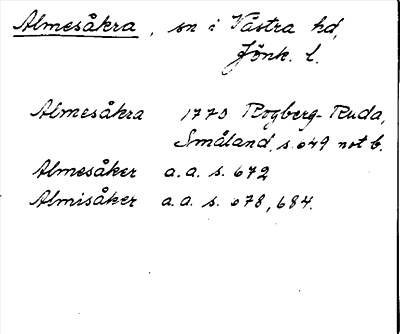 Almesåkra, sn i Västra hd,
Jönk. l.
Almesåkra 1770 Rogberg-Ruda,
Småland, s. 649 not b.
Almesåker a.a. s. 672
Almisåker a.a. s. 678, 684.